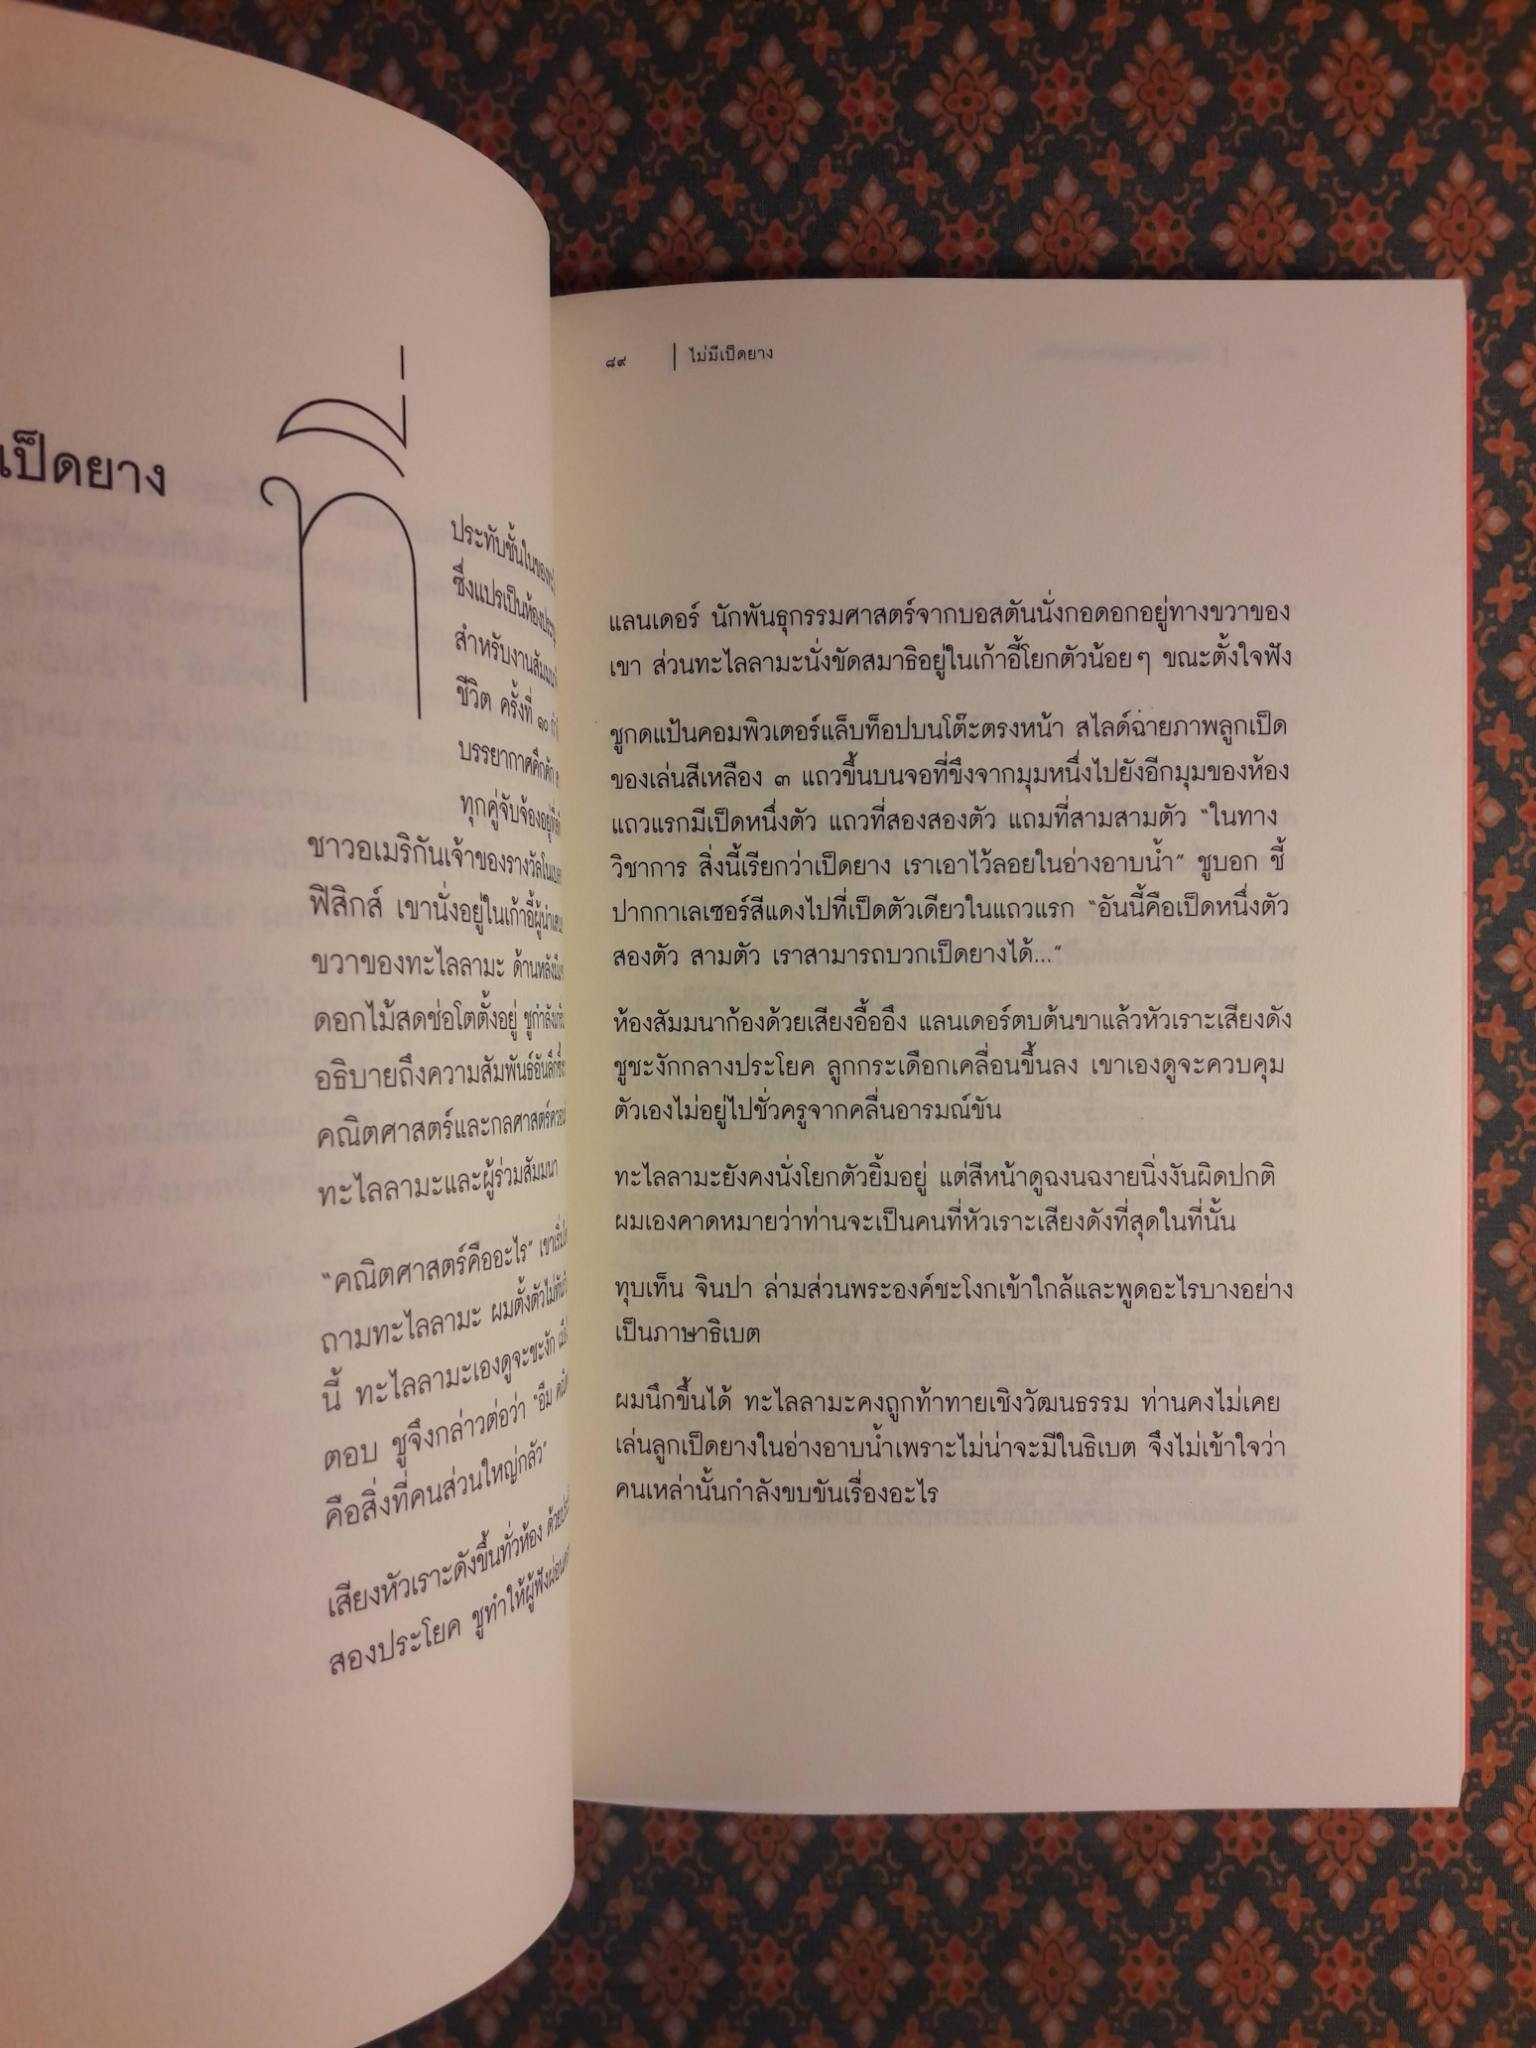 เป็ดยาง
ที่
ประทับชั้นในของ
ซึ่งแปรเป็นห้องประชุ
สำหรับงานสัมมน
ชีวิต ครั้งที่ ๑๐
บรรยากาศคึกคัก
ทุกคู่จับจ้องอยู่ที่
ชาวอเมริกันเจ้าของรางวัลโนเบล
ฟิสิกส์ เขานั่งอยู่ในเก้าอี้ผู้นำเสนอ
ขวาของทะไลลามะ ด้านหลังมี
ดอกไม้สดช่อโตตั้งอยู่ ชูกำลัง
อธิบายถึงความสัมพันธ์อันลึกซึ้ง
คณิตศาสตร์และกลศาสตร์ควอน
ทะไลลามะและผู้ร่วมสัมมนา
“คณิตศาสตร์คืออะไร” เขาเริ่ม
ถามทะไลลามะ ผมตั้งตัวไม่ทัน
นี้ ทะไลลามะเองดูจะชะงัก
ตอบ ชูจึงกล่าวต่อว่า “อืม
คือสิ่งที่คนส่วนใหญ่กลัว”
เสียงหัวเราะดังขึ้นทั่วห้อง ด้วย
สองประโยค ชูทำให้ผู้ฟังผ่อน
๘๙ | ไม่มีเป็ดยาง
แลนเดอร์ นักพันธุกรรมศาสตร์จากบอสตันนั่งกอดอกอยู่ทางขวาของ
เขา ส่วนทะไลลามะนั่งขัดสมาธิอยู่ในเก้าอี้โยกตัวน้อยๆ ขณะตั้งใจฟัง
ชูกดแป้นคอมพิวเตอร์แล็บท็อปบนโต๊ะตรงหน้า สไลด์ฉายภาพลูกเป็ด
ของเล่นสีเหลือง ๓ แถวขึ้นบนจอที่ขึงจากมุมหนึ่งไปยังอีกมุมของห้อง
แถวแรกมีเป็ดหนึ่งตัว แถวที่สองสองตัว แถมที่สามสามตัว “ในทาง
วิชาการ สิ่งนี้เรียกว่าเป็ดยาง เราเอาไว้ลอยในอ่างอาบน้ำ” ชูบอก ชี้
ปากกาเลเซอร์สีแดงไปที่เป็ดตัวเดียวในแถวแรก “อันนี้คือเป็ดหนึ่งตัว
สองตัว สามตัว เราสามารถบวกเป็ดยางได้...”
ห้องสัมมนาก้องด้วยเสียงอื้ออึง แลนเดอร์ตบต้นขาแล้วหัวเราะเสียงดัง
ชูชะงักกลางประโยค ลูกกระเดือกเคลื่อนขึ้นลง เขาเองดูจะควบคุม
ตัวเองไม่อยู่ไปชั่วครูจากคลื่นอารมณ์ขัน
ทะไลลามะยังคงนั่งโยกตัวยิ้มอยู่ แต่สีหน้าดูฉงนฉงายนิ่งงันผิดปกติ
ผมเองคาดหมายว่าท่านจะเป็นคนที่หัวเราะเสียงดังที่สุดในที่นั้น
ทุบเท็น จินปา ล่ามส่วนพระองค์ชะโงกเข้าใกล้และพูดอะไรบางอย่าง
เป็นภาษาธิเบต
ผมนึกขึ้นได้ ทะไลลามะคงถูกท้าทายเชิงวัฒนธรรม ท่านคงไม่เคย
เล่นลูกเป็ดยางในอ่างอาบน้ำเพราะไม่น่าจะมีในธิเบต จึงไม่เข้าใจว่า
คนเหล่านั้นกำลังขบขันเรื่องอะไร